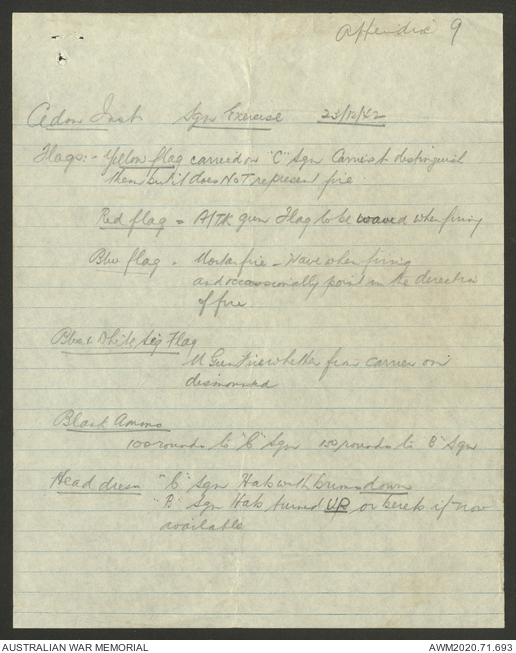 Appendix 9
Admin Inst Sqn Exercise 23/12/42
Flags:- Yellow flag carried on "C" Sqn Carriers to distinguish
them but it does NOT represent fire.
Red flag = A/TK gun Flag to be waved when firing
Blue flag - Mortar fire - Wave when firing
and occassionally point in the direction
of fire
Blue & White Sig Flag
M Gun Fire whether from carrier or
dismounted
Blank Ammo
100 rounds to "C" Sqn 150 rounds to B" Sqn
Head dress "C" Sqn Hats with brims down
"B" Sqn Hats turned UP or berets if now
available
AUSTRALIAN WAR MEMORIAL
AWM2020.71.693